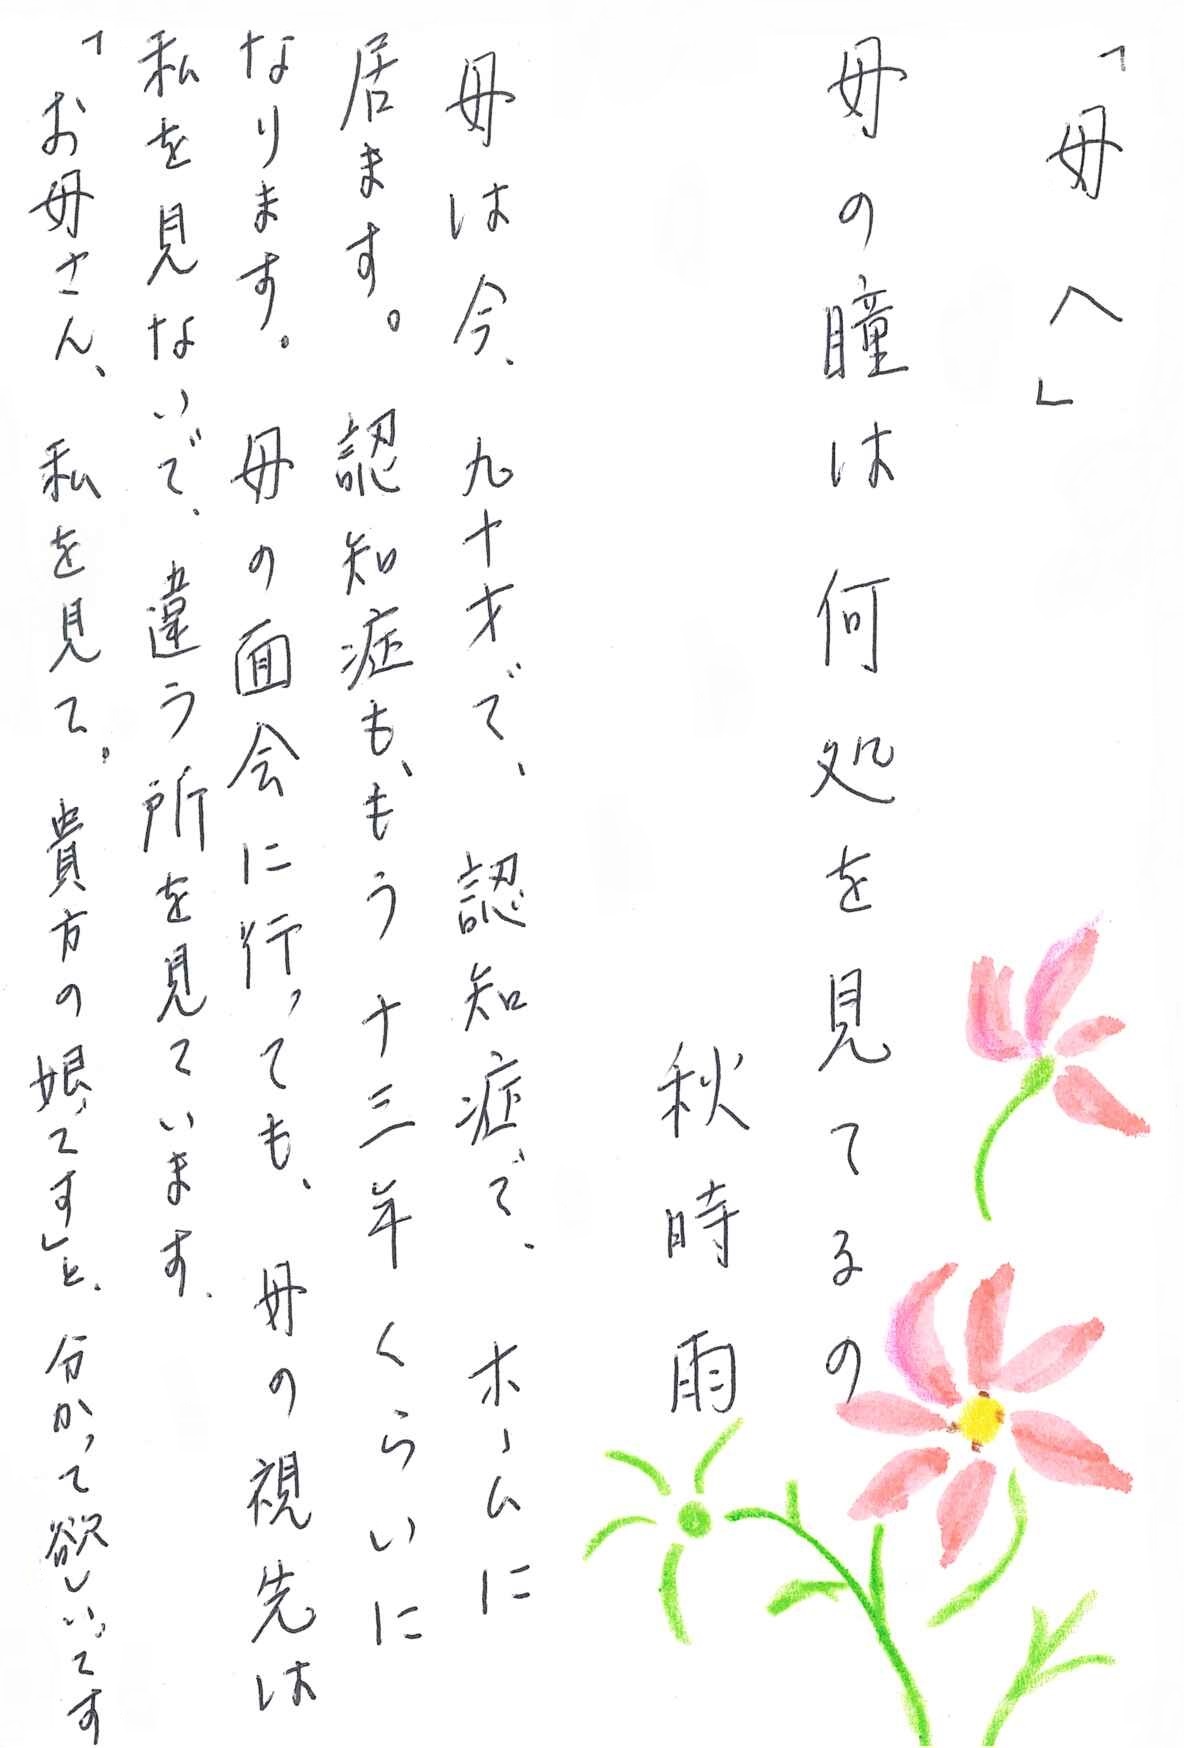 「母へ」
母の瞳は何処を見てるの
秋時雨
母は今、九十才で、認知症で、ホームに
居ます。認知症も、もう十三年くらいに
なります。母の面会に行っても、母の視先は
私を見ないで、違う所を見ています。
「お母さん、私を見て。貴方の娘です」と、分かって欲しいです